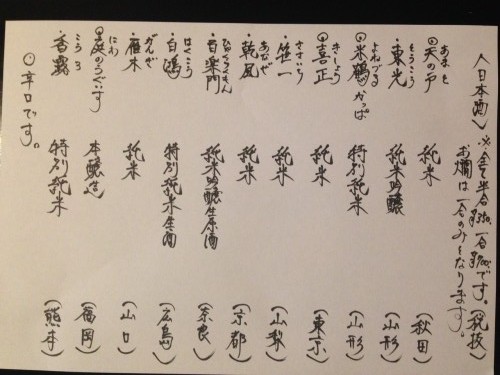 〈日本酒〉 ※全て半合350、一合700円です。(税抜)
お燗は一合のみとなります。
あま と
◎天の戸 純米 (秋田)
とうこう
・東光 純米吟醸 (山形)
よねづる
◎米鶴 かっぱ 特別純米 (山形)
きしょう
◎喜正 純米 (東京)
ささいち
・笹一 純米 (山梨)
あなぜ
・乾風 純米 (京都)
ひゃくらくもん
・百楽門 純米吟醸生原酒 (奈良)
はくこう
・白鴻 特別純米生酒 (広島)
がんぎ
・雁木 純米 (山口)
にわ
◎庭のうぐいす 本醸造 (福岡)
こうろ
・香露 特別純米 (熊本)
◎辛口です。